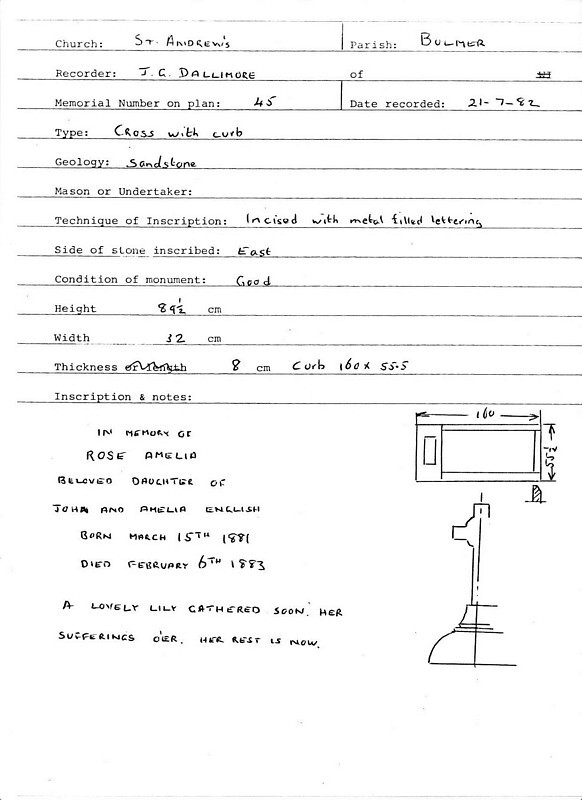 Church: St. Andrew's Parish: Bulmer
Recorder: J. G. Dallimore of
Memorial Number on plan: 45 Date recorded: 21-7-82
Type: Cross with curb
Geology: Sandstone
Mason or Undertaker:
Technique of Inscription: Incised with metal filled lettering
Side of stone inscribed: East
Condition of monument: Good
Height 89½ cm
Width 32 cm
Thickness or length 8 cm Curb 160 x 55.5
Inscription & notes:
160
55½
IN MEMORY OF
ROSE AMELIA
BELOVED DAUGHTER OF
JOHN AND AMELIA ENGLISH
BORN MARCH 15TH 1881
DIED FEBRUARY 6TH 1883
A LOVELY LILY GATHERED SOON. HER
SUFFERINGS O'ER. HER REST IS NOW.